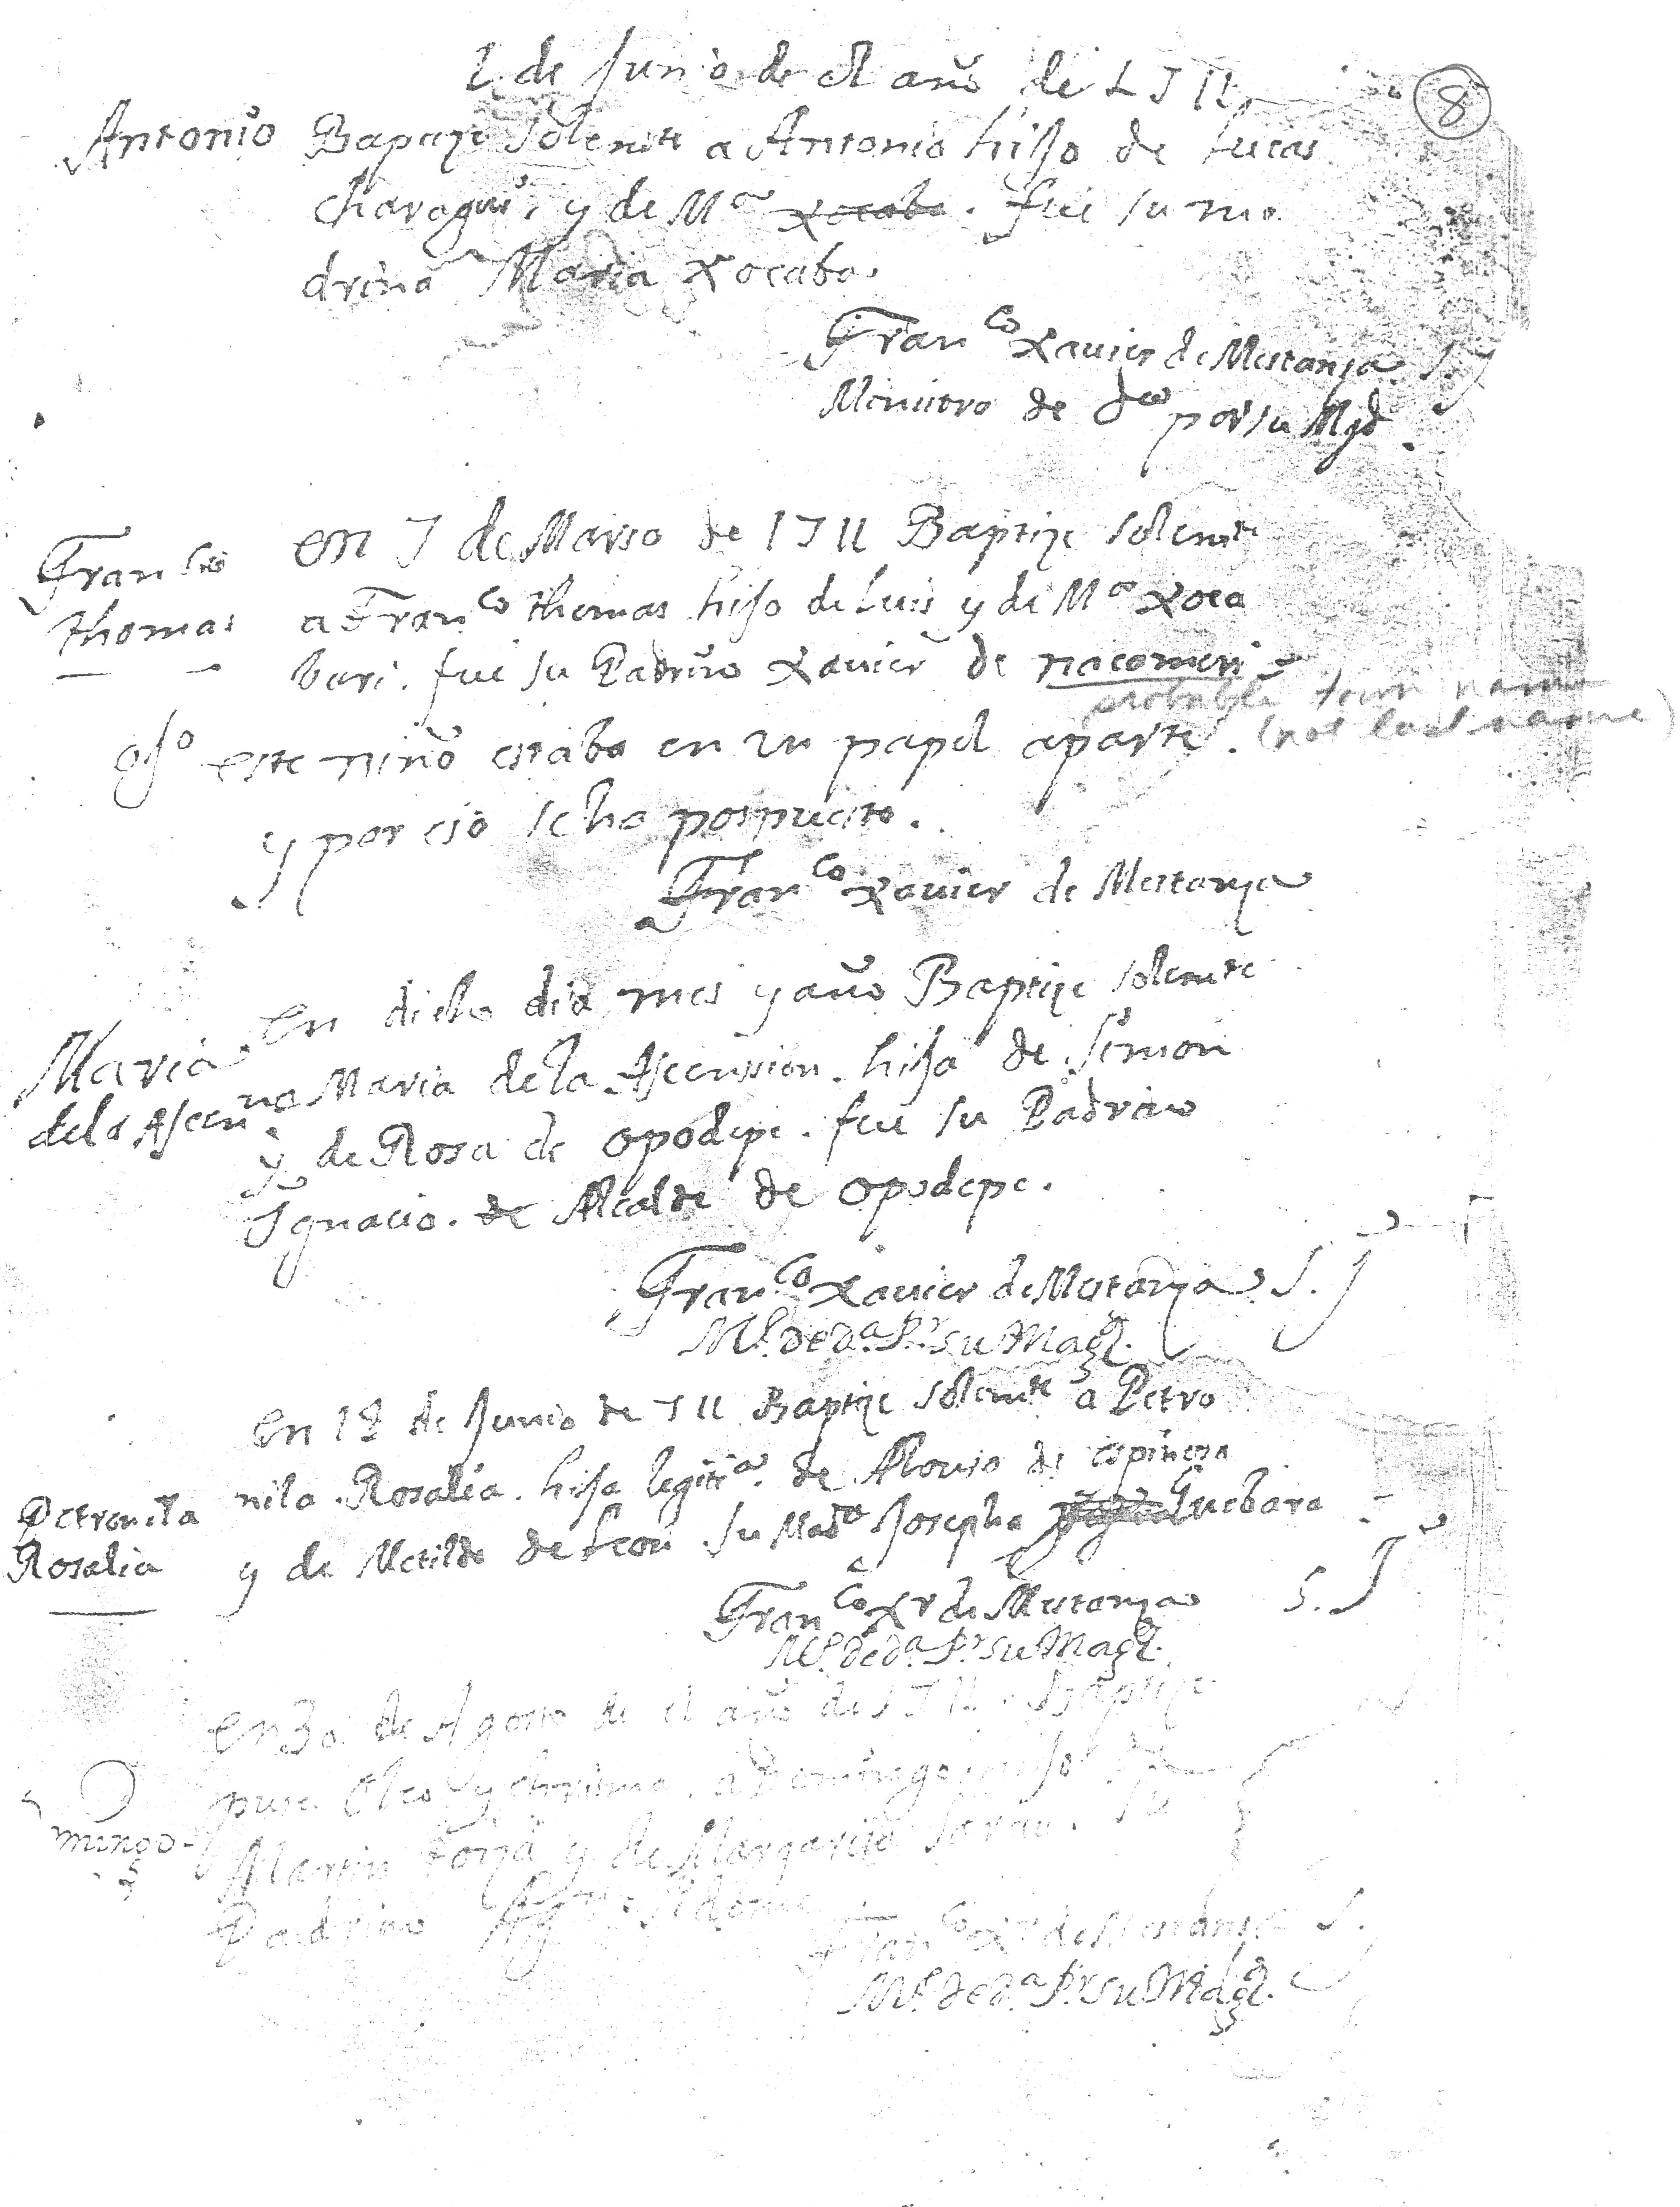 2 de Junio de el año de 1711
8
Antonio Baptize solemte a Antonio hijo de Lucas
charagui, y de Ma xocabo. fue su ma
drina Maria xocabo.
Franco Xavier de Mestanza S.J
Ministro de dco por su Mgd.
Franco en 7 de Marso de 1711 Baptize solemte
thomas a Franco thomas hijo de Luis y de Ma xoca
bari. fue su Padrino xavier de nacomeri
probable town name
(not last name)
ojo este niño estaba en un papel aparte.
y por eso se ha pospuesto.
Franco Xavier de Mestanza
en dicho dia mes y año Baptize solemte
Maria Maria de la Ascenssion. hija de Simon
de la Ascenna
y de Rosa de opodepe. fue su Padrino
Ignacio. de Alcalde de opodepe.
Franco Xavier de Mestanza S.J
Mo. de da. Pr. su Magd.
en 18 de Junio de 711 Baptize solemte a Petro
Petronila nila Rosalia. hija legitia. de Alonso de espinosa
Rosalia y de Metilde de Leon su Mada Josepha Guebara
Franco Xr de Mestanza S.J
Mo. de da. Pr. su Magd.
en 30 de Agosto de el año de 1711. Baptize
puse Oleo y chrisma. a Domingo hijo de
mingo
Martin y de Margarita su
Padrino
Franco Xr de Mestanza S.J
Mo. de da. Pr. su Magd.